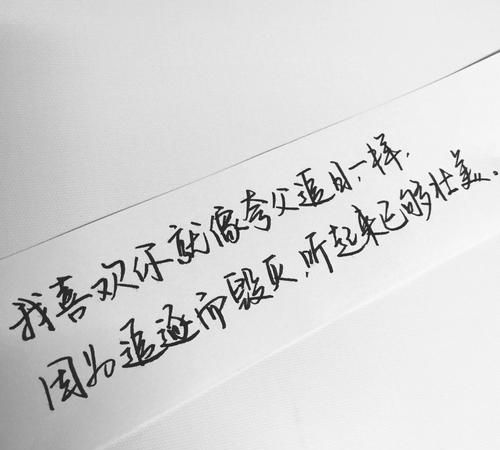 我喜欢你就像夸父追日一样,
因为追逐而毁灭,听起来已够壮美。